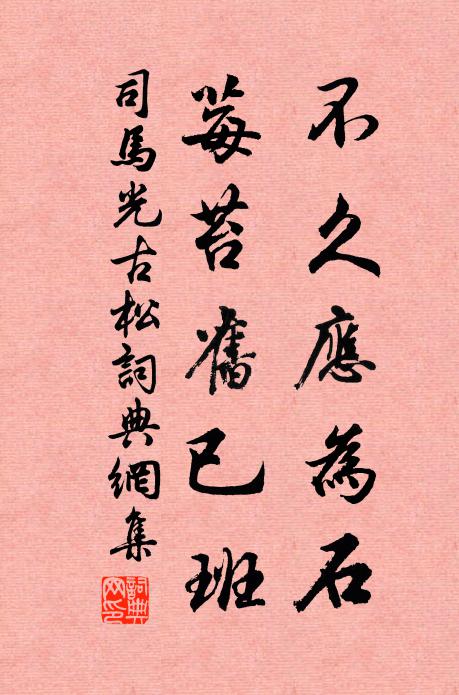 不久應為石
莓苔舊已班
司馬光古松詞典網集
詞典网印